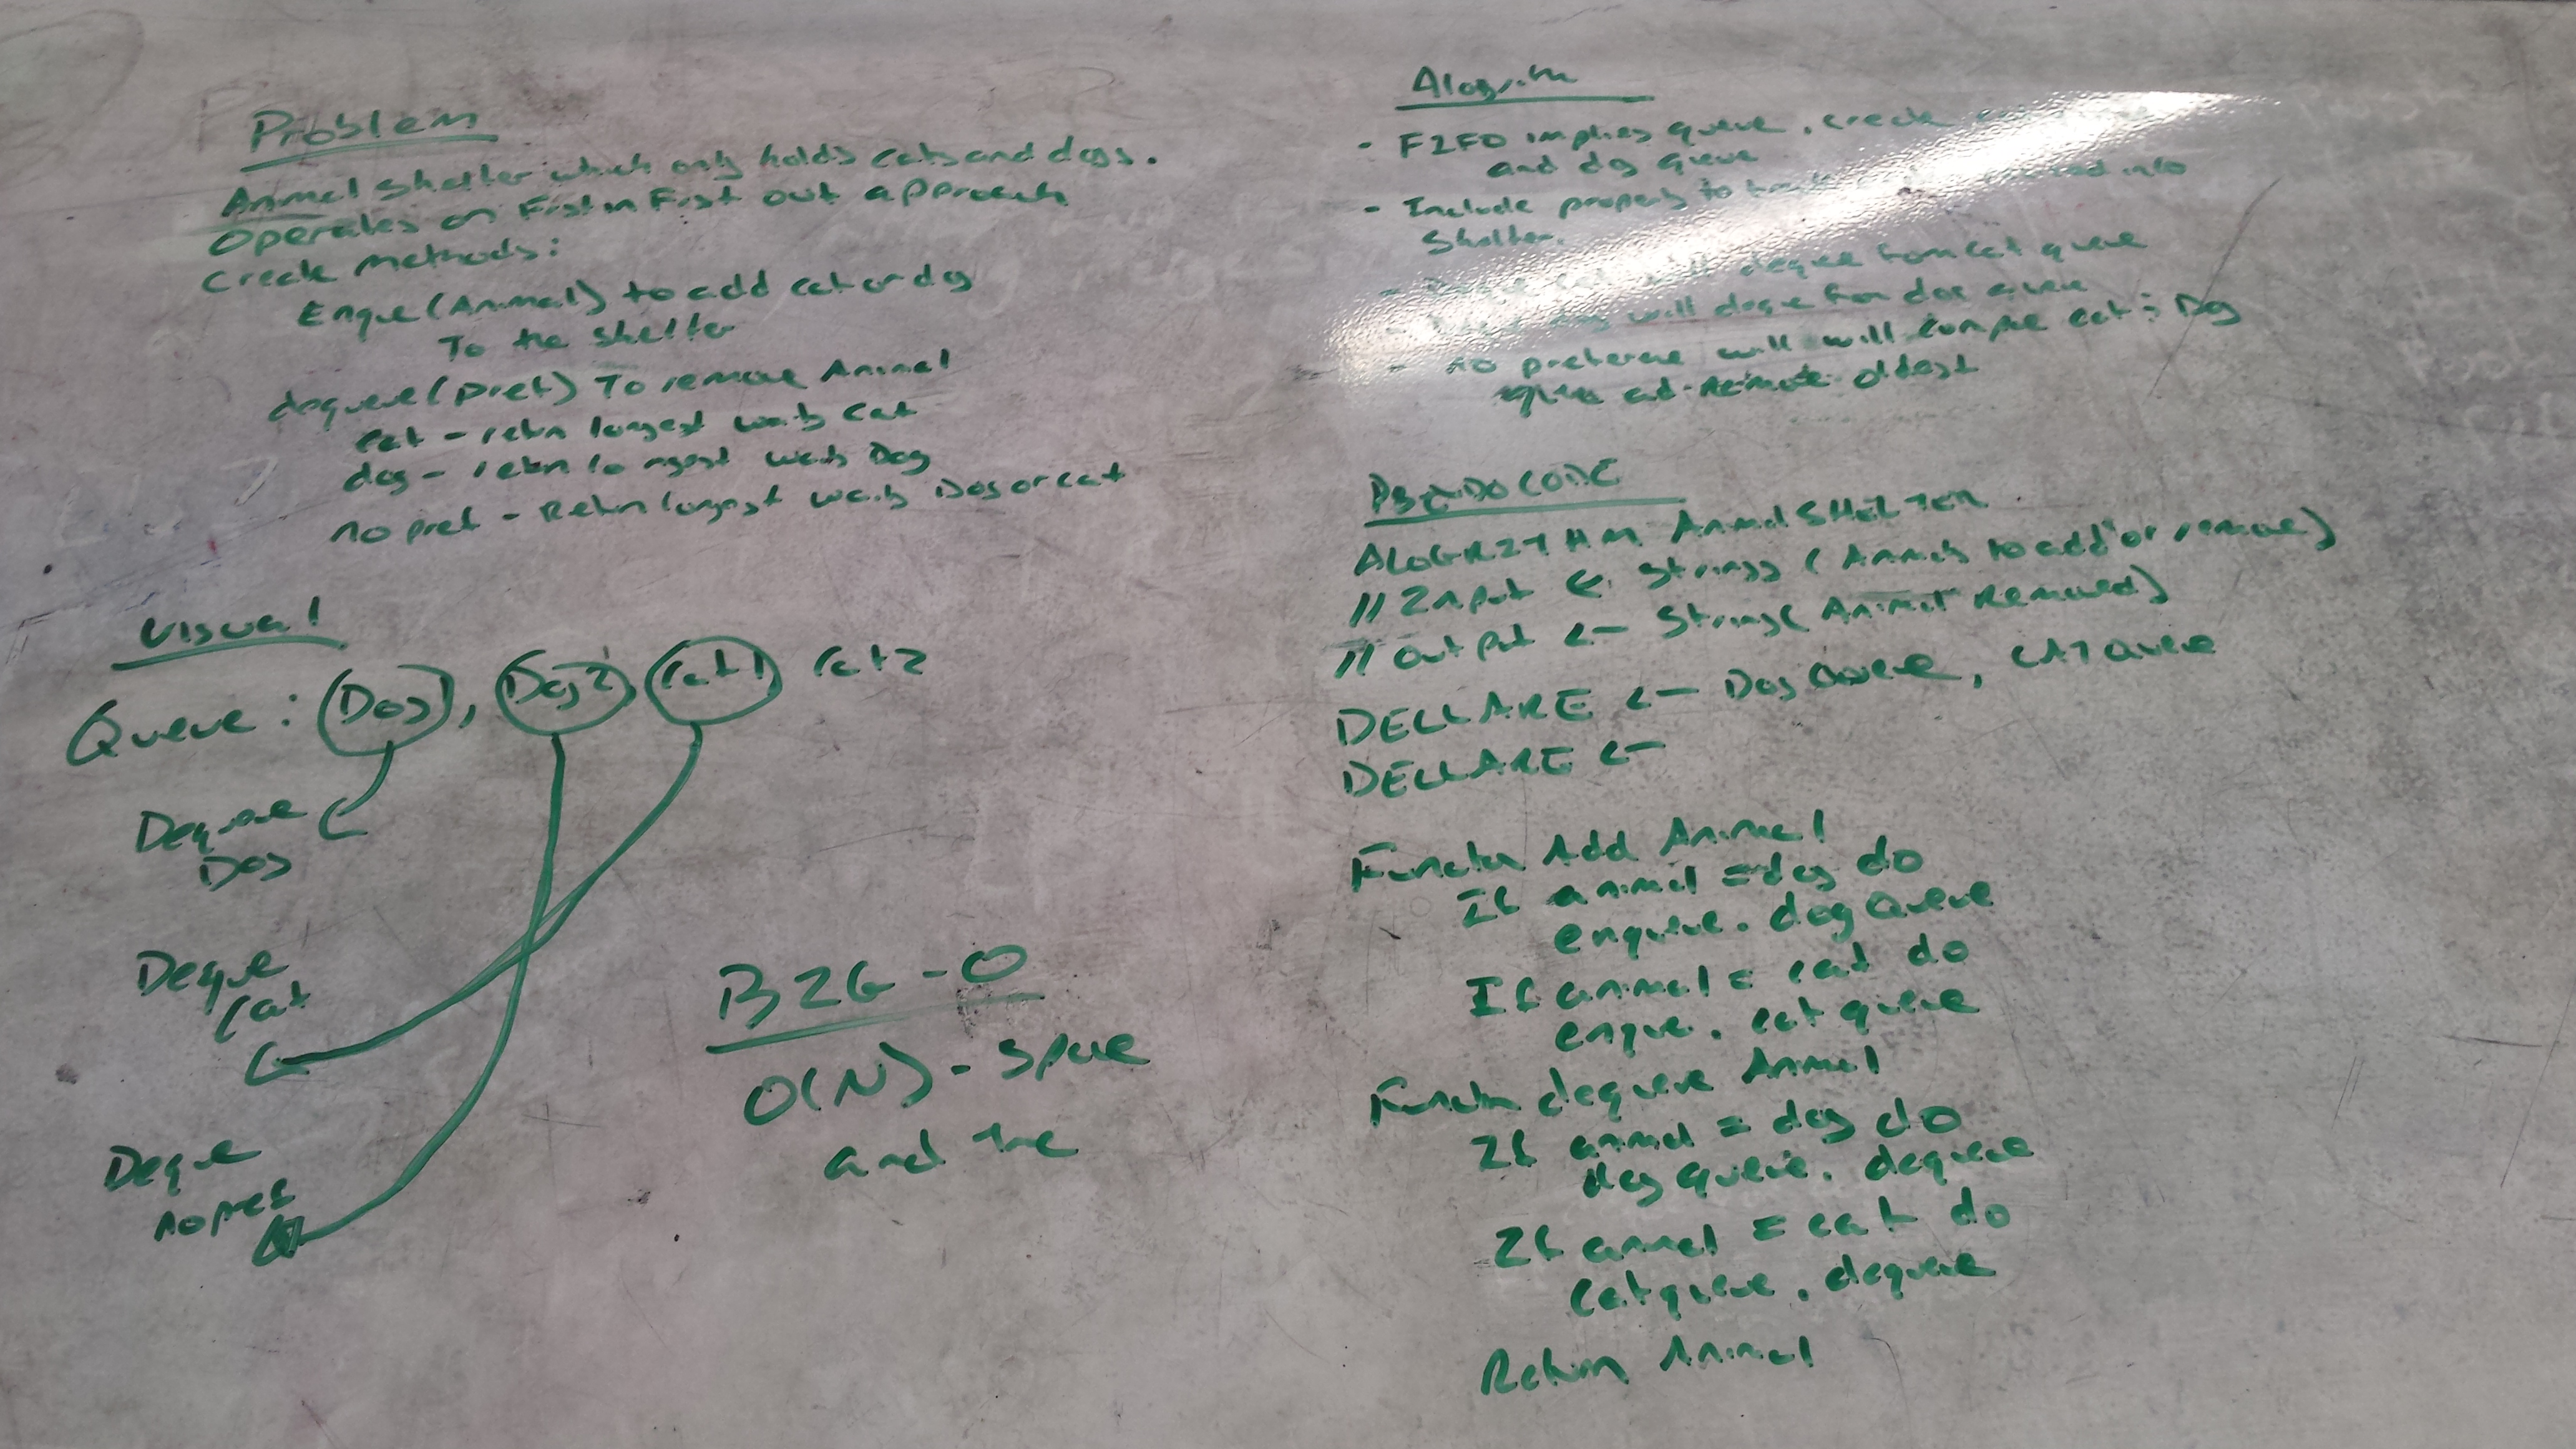 Problem
Animal Shelter which only holds cats and dogs.
Operates on First in First out approach
Create Methods:
Enque(Animal) to add cat or dog
To the shelter
dequeue(pref) To remove Animal
cat - return longest waits cat
dog - return longest waits Dog
no pref - Return longest waits Dog or cat
Visual
Queue: Dog1, Dog2 Cat1 Cat2
Dequeue
Dog
Deque
Cat
Deque
nopref
BIG-O
O(N) - Space
and time
Alogrithm
- FIFO implies queue, create
and dog queue
- Include property to into
Shelter.
deque from cat queue
dog will deque from dog queue
- no preference will will compare cat & Dog
and Remove oldest
PSEUDOCODE
ALOGRITHM Animal SHELTER
// Input <- Strings (Animals to add or remove)
// Output <- String (Animal Removed)
DECLARE <- Dog Queue, CAT Queue
DECLARE <-
Function Add Animal
If animal = dog do
enqueue. dog Queue
If animal = cat do
enque. cat queue
Function dequeue Animal
If animal = dog do
dog queue. dequeue
If animal = cat do
Cat queue. dequeue
Return Animal